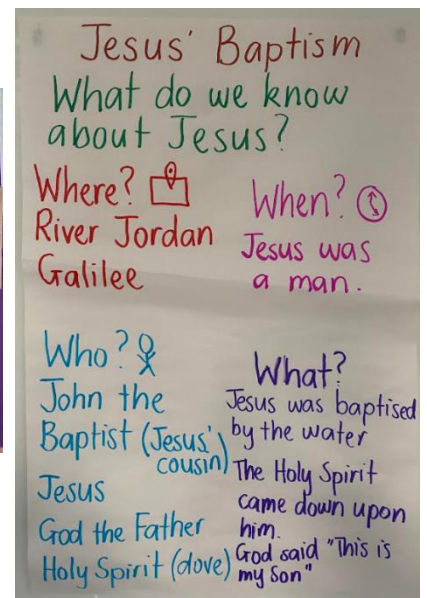 Jesus' Baptism
What do we know
about Jesus?
Where?
River Jordan
Galilee
When?
Jesus was
a man.
Who?
John the
Baptist (Jesus'
cousin)
Jesus
God the Father
Holy Spirit (dove)
What?
Jesus was baptised
by the water
The Holy Spirit
came down upon
him.
God said "This is
my Son"